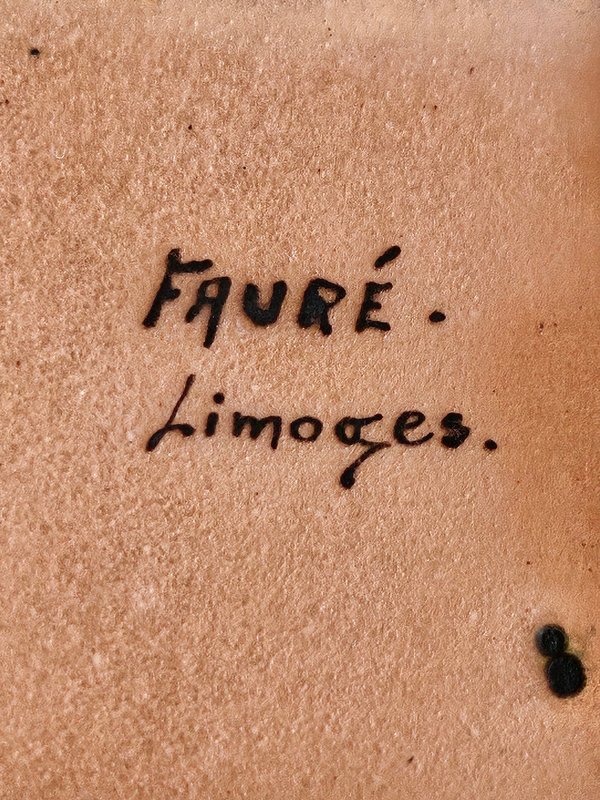 FAURÉ.
Limoges.